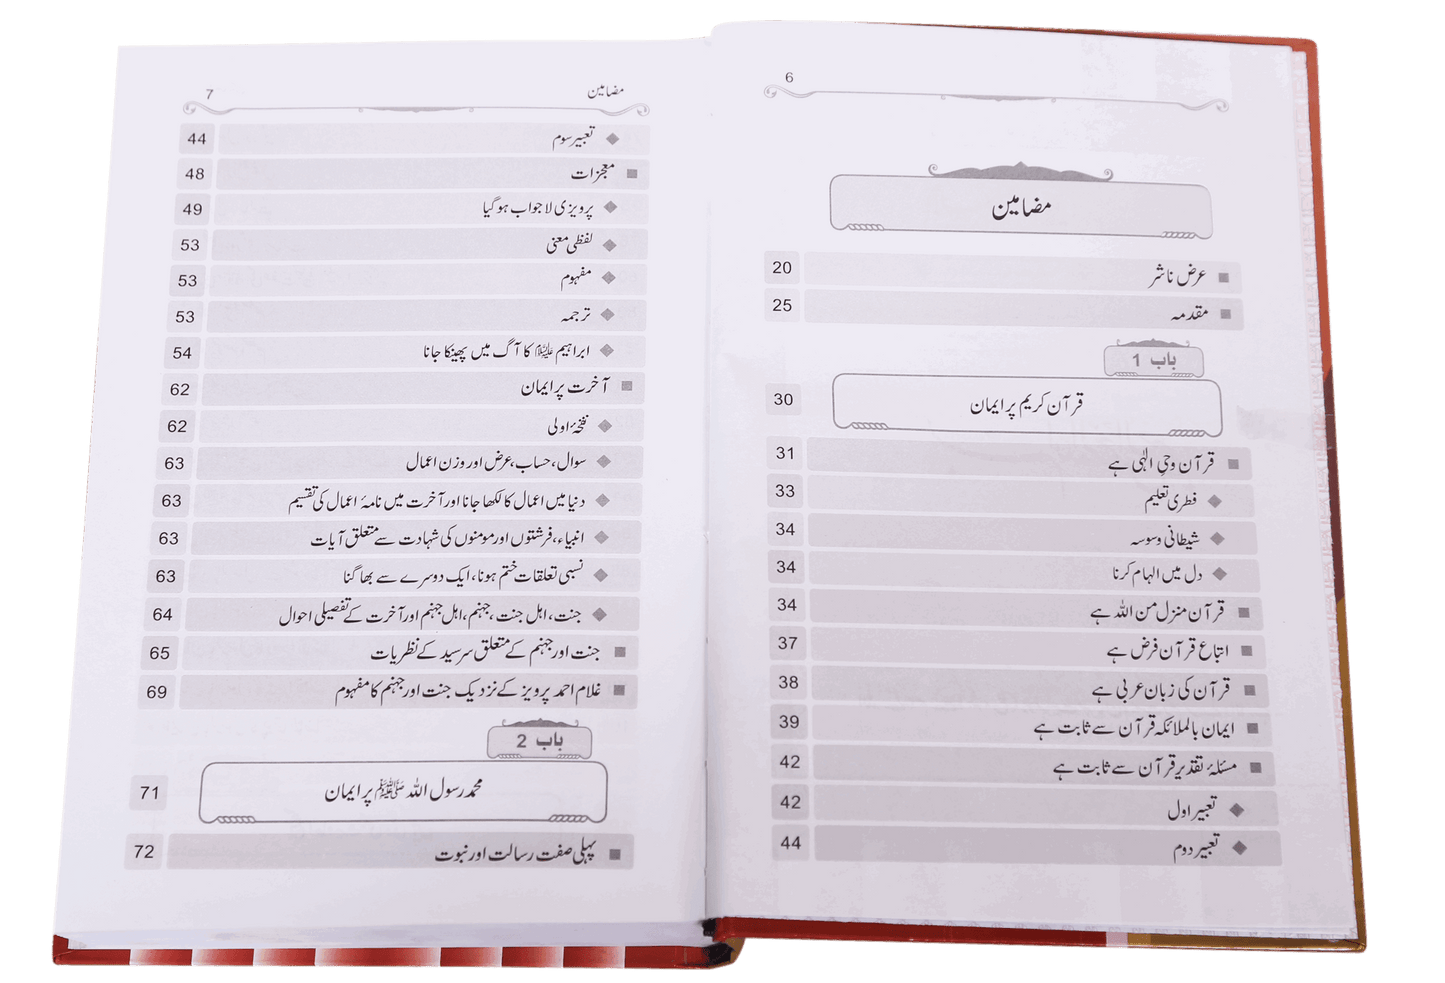 6
مضامین
عرض ناشر 20
مقدمہ 25
باب 1
قرآن کریم پر ایمان 30
قرآن وحیِ الٰہی ہے 31
فطری تعلیم 33
شیطانی وسوسہ 34
دل میں الہام کرنا 34
قرآن منزل من اللہ ہے 34
اتباع قرآن فرض ہے 37
قرآن کی زبان عربی ہے 38
ایمان بالملائکہ قرآن سے ثابت ہے 39
مسئلۂ تقدیر قرآن سے ثابت ہے 42
تعبیر اول 42
تعبیر دوم 44
مضامین 7
تعبیر سوم 44
معجزات 48
پرویزی لاجواب ہو گیا 49
لفظی معنی 53
مفہوم 53
ترجمہ 53
ابراہیم علیہ السلام کا آگ میں پھینکا جانا 54
آخرت پر ایمان 62
نفخۂ اولی 62
سوال، حساب، عرض اور وزن اعمال 63
دنیا میں اعمال کا لکھا جانا اور آخرت میں نامۂ اعمال کی تقسیم 63
انبیاء، فرشتوں اور مومنوں کی شہادت سے متعلق آیات 63
نسبی تعلقات ختم ہونا، ایک دوسرے سے بھاگنا 63
جنت، اہل جنت، جہنم، اہل جہنم اور آخرت کے تفصیلی احوال 64
جنت اور جہنم کے متعلق سرسید کے نظریات 65
غلام احمد پرویز کے نزدیک جنت اور جہنم کا مفہوم 69
باب 2
محمد رسول اللہ ﷺ پر ایمان 71
پہلی صفت رسالت اور نبوت 72